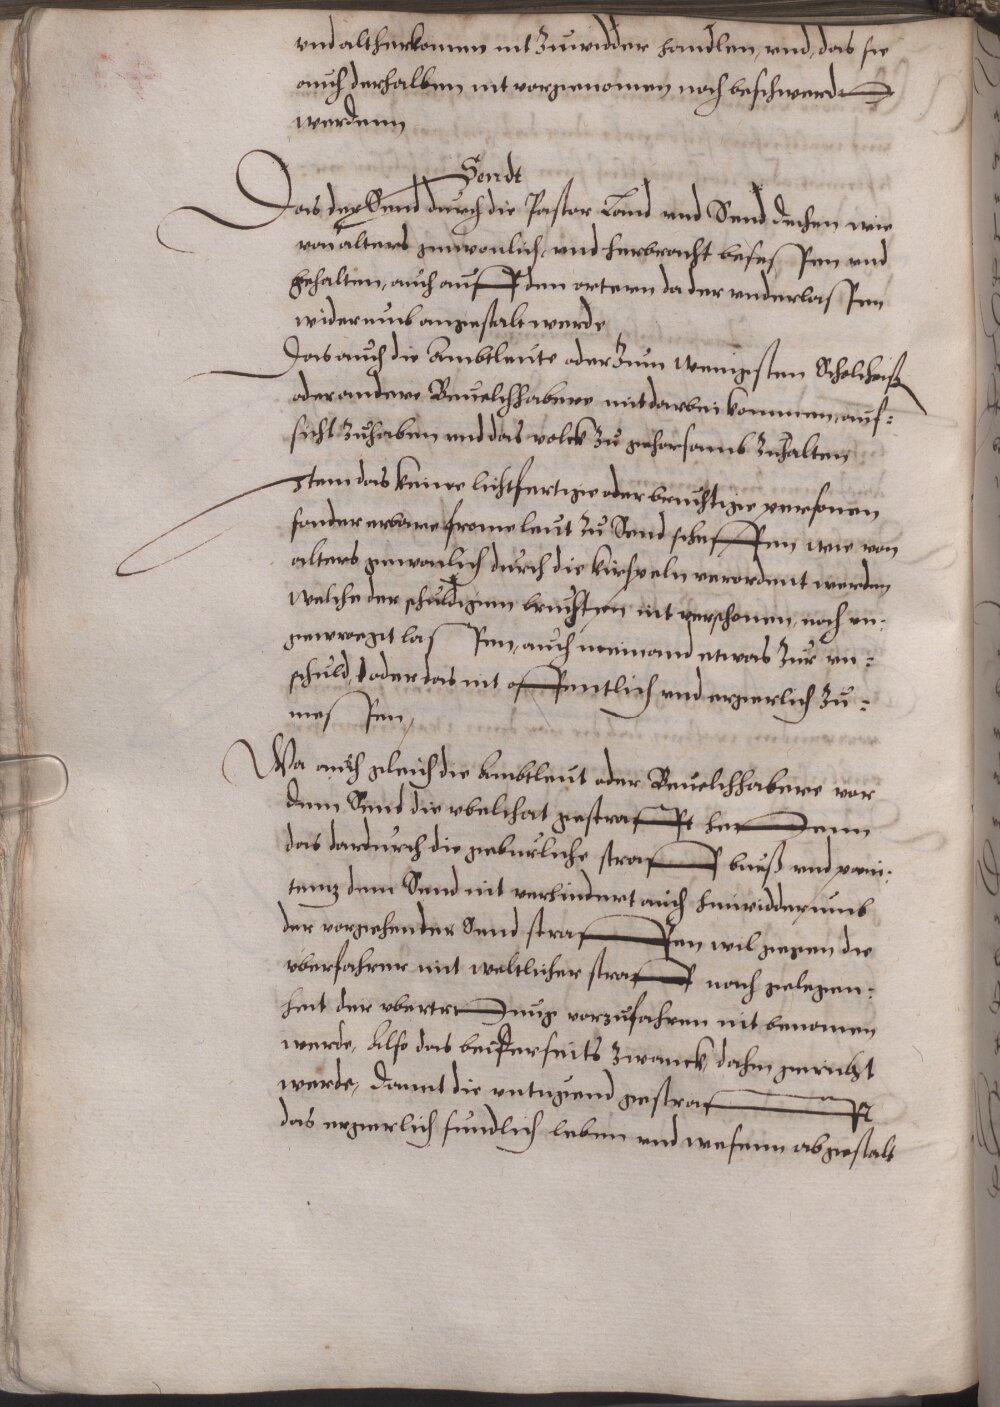 vnd altherkomen nit zuwidder handlen, vnd, das sie
auch derhalben nit vorgenomen noch beschwerdt
werdenn
Sendt
Das der Send durch die Pastor Land vnd Send dechen wie
von alters gewonlich, vnd herbracht besessen vnd
gehalten, auch auff den ortern da der vnderlassen
widerumb angestalt werde
Das auch die Ambtleute oder zum wenigsten Scholtheiß
oder andere Beuelchhabere mit darbei kommen, auf=
sicht zuhaben vnd das volck zu gehorsamb zuhalten
Item das keine lichtfertige oder bruchtige personen
sonder erbare frome leut zu Send scheffen wie von
alters gewonlich durch die kirspeln verordent werden
welche der schuldigenn bruchten nit verschonen, noch vn=
gewroegt lassen, auch niemand etwas zur vn=
schuld, oder das nit offentlich vnd ergerlich zu=
messen,
Wa auch gleich die Ambtleut oder Beuelchhabere vor
dem Send die vbelthat gestrafft hettenn
das dardurch die geburliche straff buiß vnd peni=
tentz dem Send nit verhindert auch hinwidderumb
der vorgehender Send straffen wil gegen die
vberfahrer mit weltlicher straff nach gelegen=
heit der vbertrettung vorzufahren nit benomen
werde, Also das beiderseits zwanck dahin gericht
werde, damit die vntugend gestrafft
das ergerlich sundlich leben vnd wesenn abgestalt